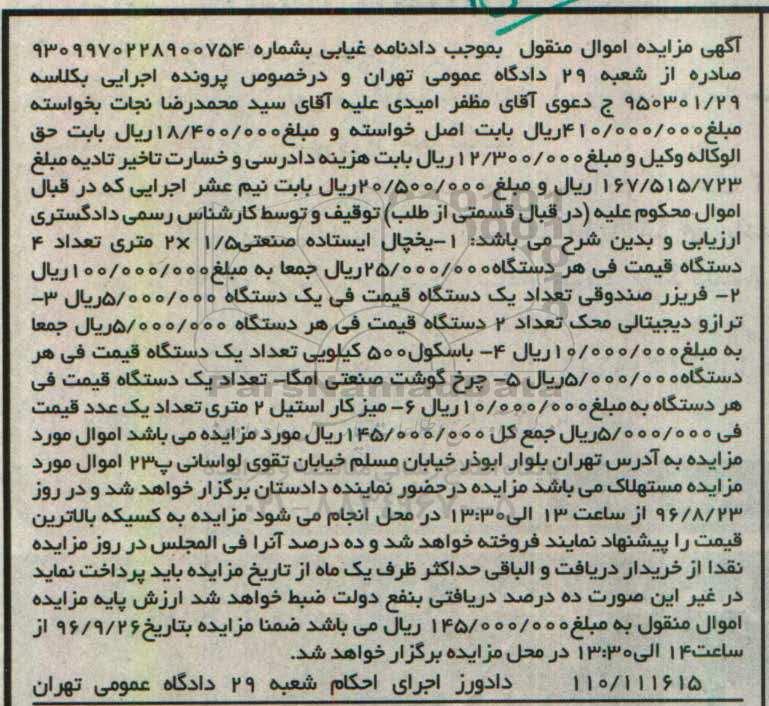 آگهی مزایده اموال منقول بموجب دادنامه غیابی بشماره ۹۳۰۹۹۷۰۲۲۸۹۰۰۷۵۴
صادره از شعبه ۲۹ دادگاه عمومی تهران و درخصوص پرونده اجرایی بکلاسه
۹۵۰۳۰۱/۲۹ ج دعوی آقای مظفر امیدی علیه آقای سید محمدرضا نجات بخواسته
مبلغ۴۱۰/۰۰۰/۰۰۰ریال بابت اصل خواسته و مبلغ۱۸/۴۰۰/۰۰۰ریال بابت حق
الوکاله وکیل و مبلغ۱۲/۳۰۰/۰۰۰ریال بابت هزینه دادرسی و خسارت تاخیر تادیه مبلغ
۱۶۷/۵۱۵/۷۲۳ ریال و مبلغ ۲۰/۵۰۰/۰۰۰ریال بابت نیم عشر اجرایی که در قبال
اموال محکوم علیه (در قبال قسمتی از طلب) توقیف و توسط کارشناس رسمی دادگستری
ارزیابی و بدین شرح می باشد: ۱-یخچال ایستاده صنعتی۱/۵ ×۲ متری تعداد ۴
دستگاه قیمت فی هر دستگاه۲۵/۰۰۰/۰۰۰ریال جمعا به مبلغ۱۰۰/۰۰۰/۰۰۰ریال
۲- فریزر صندوقی تعداد یک دستگاه قیمت فی یک دستگاه ۵/۰۰۰/۰۰۰ریال ۳-
ترازو دیجیتالی محک تعداد ۲ دستگاه قیمت فی هر دستگاه ۵/۰۰۰/۰۰۰ریال جمعا
به مبلغ۱۰/۰۰۰/۰۰۰ریال ۴- باسکول۵۰۰ کیلویی تعداد یک دستگاه قیمت فی هر
دستگاه۵/۰۰۰/۰۰۰ریال ۵- چرخ گوشت صنعتی امگا- تعداد یک دستگاه قیمت فی
هر دستگاه به مبلغ۱۰/۰۰۰/۰۰۰ریال ۶- میز کار استیل ۲ متری تعداد یک عدد قیمت
فی ۵/۰۰۰/۰۰۰ریال جمع کل ۱۴۵/۰۰۰/۰۰۰ریال مورد مزایده می باشد اموال مورد
مزایده به آدرس تهران بلوار ابوذر خیابان مسلم خیابان تقوی لواسانی پ۲۳ اموال مورد
مزایده مستهلاک می باشد مزایده درحضور نماینده دادستان برگزار خواهد شد و در روز
۹۶/۸/۲۳ از ساعت ۱۳ الی۱۳:۳۰ در محل انجام می شود مزایده به کسیکه بالاترین
قیمت را پیشنهاد نمایند فروخته خواهد شد و ده درصد آنرا فی المجلس در روز مزایده
نقدا از خریدار دریافت و الباقی حداکثر ظرف یک ماه از تاریخ مزایده باید پرداخت نماید
در غیر این صورت ده درصد دریافتی بنفع دولت ضبط خواهد شد ارزش پایه مزایده
اموال منقول به مبلغ۱۴۵/۰۰۰/۰۰۰ ریال می باشد ضمنا مزایده بتاریخ۹۶/۹/۲۶ از
ساعت۱۴ الی۱۳:۳۰ در محل مزایده برگزار خواهد شد.
۱۱۰/۱۱۱۶۱۵ دادورز اجرای احکام شعبه ۲۹ دادگاه عمومی تهران
ParsNamadData